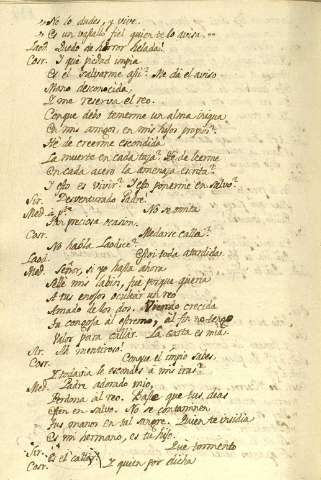 " No lo dudes, y vive.
" Es un vasallo fiel quien te lo avisa "
Laod. Quedo de horror helada!
Cosr. Y que piedad impia
Es el salvarme asi? Me dá el aviso
Mano desconocida,
Y me reserva el reo.
Conque debo temerme un alma iniqua
En mis amigos, en mis hijos propios?
Hé de creerme escondida
La muerte en cada taza? Hé de leerme
En cada acero la amenaza escrita?
Y esto es vivir? Y esto ponerme en salvo?
Sir. Desventurado Padre!
Med. á pte. No se omita
Tan preciosa ocasion.
Cosr. Medarse calla?
No habla Laodice?
Laod. Estoi toda aturdida.
Med. Señor, si yo hasta ahora
Sellé mis labios, fué porque queria
A tus enojos ocultar un reo
Amado de los dos. Viendo crecida
Tu congoja al estremo, no tengo
Valor para callar. La carta es mia.
Sir. Ah mentiroso!
Cosr. Conque el impio sabes,
Y todavia le escondes á mis iras?
Med. Padre adorado mio,
Perdona al reo. Baste que tus dias
Esten en salvo. No se contaminen
Tus manos en tal sangre. Quien te insidia
Es mi hermano, es tu hijo.
Sir. Que tormento
Cosr. Y quien por dicha